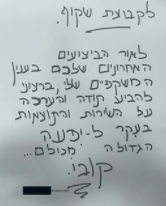 לקבוצת שקוף.
לאור הביצועים
האחרונים שלכם בענין
המשקפיים שלי, ברצוני
להביע תודה והערכה
על השירות והתוצאות
בעיקר ל-יפעה
הגדולה מכולם...
קובי.